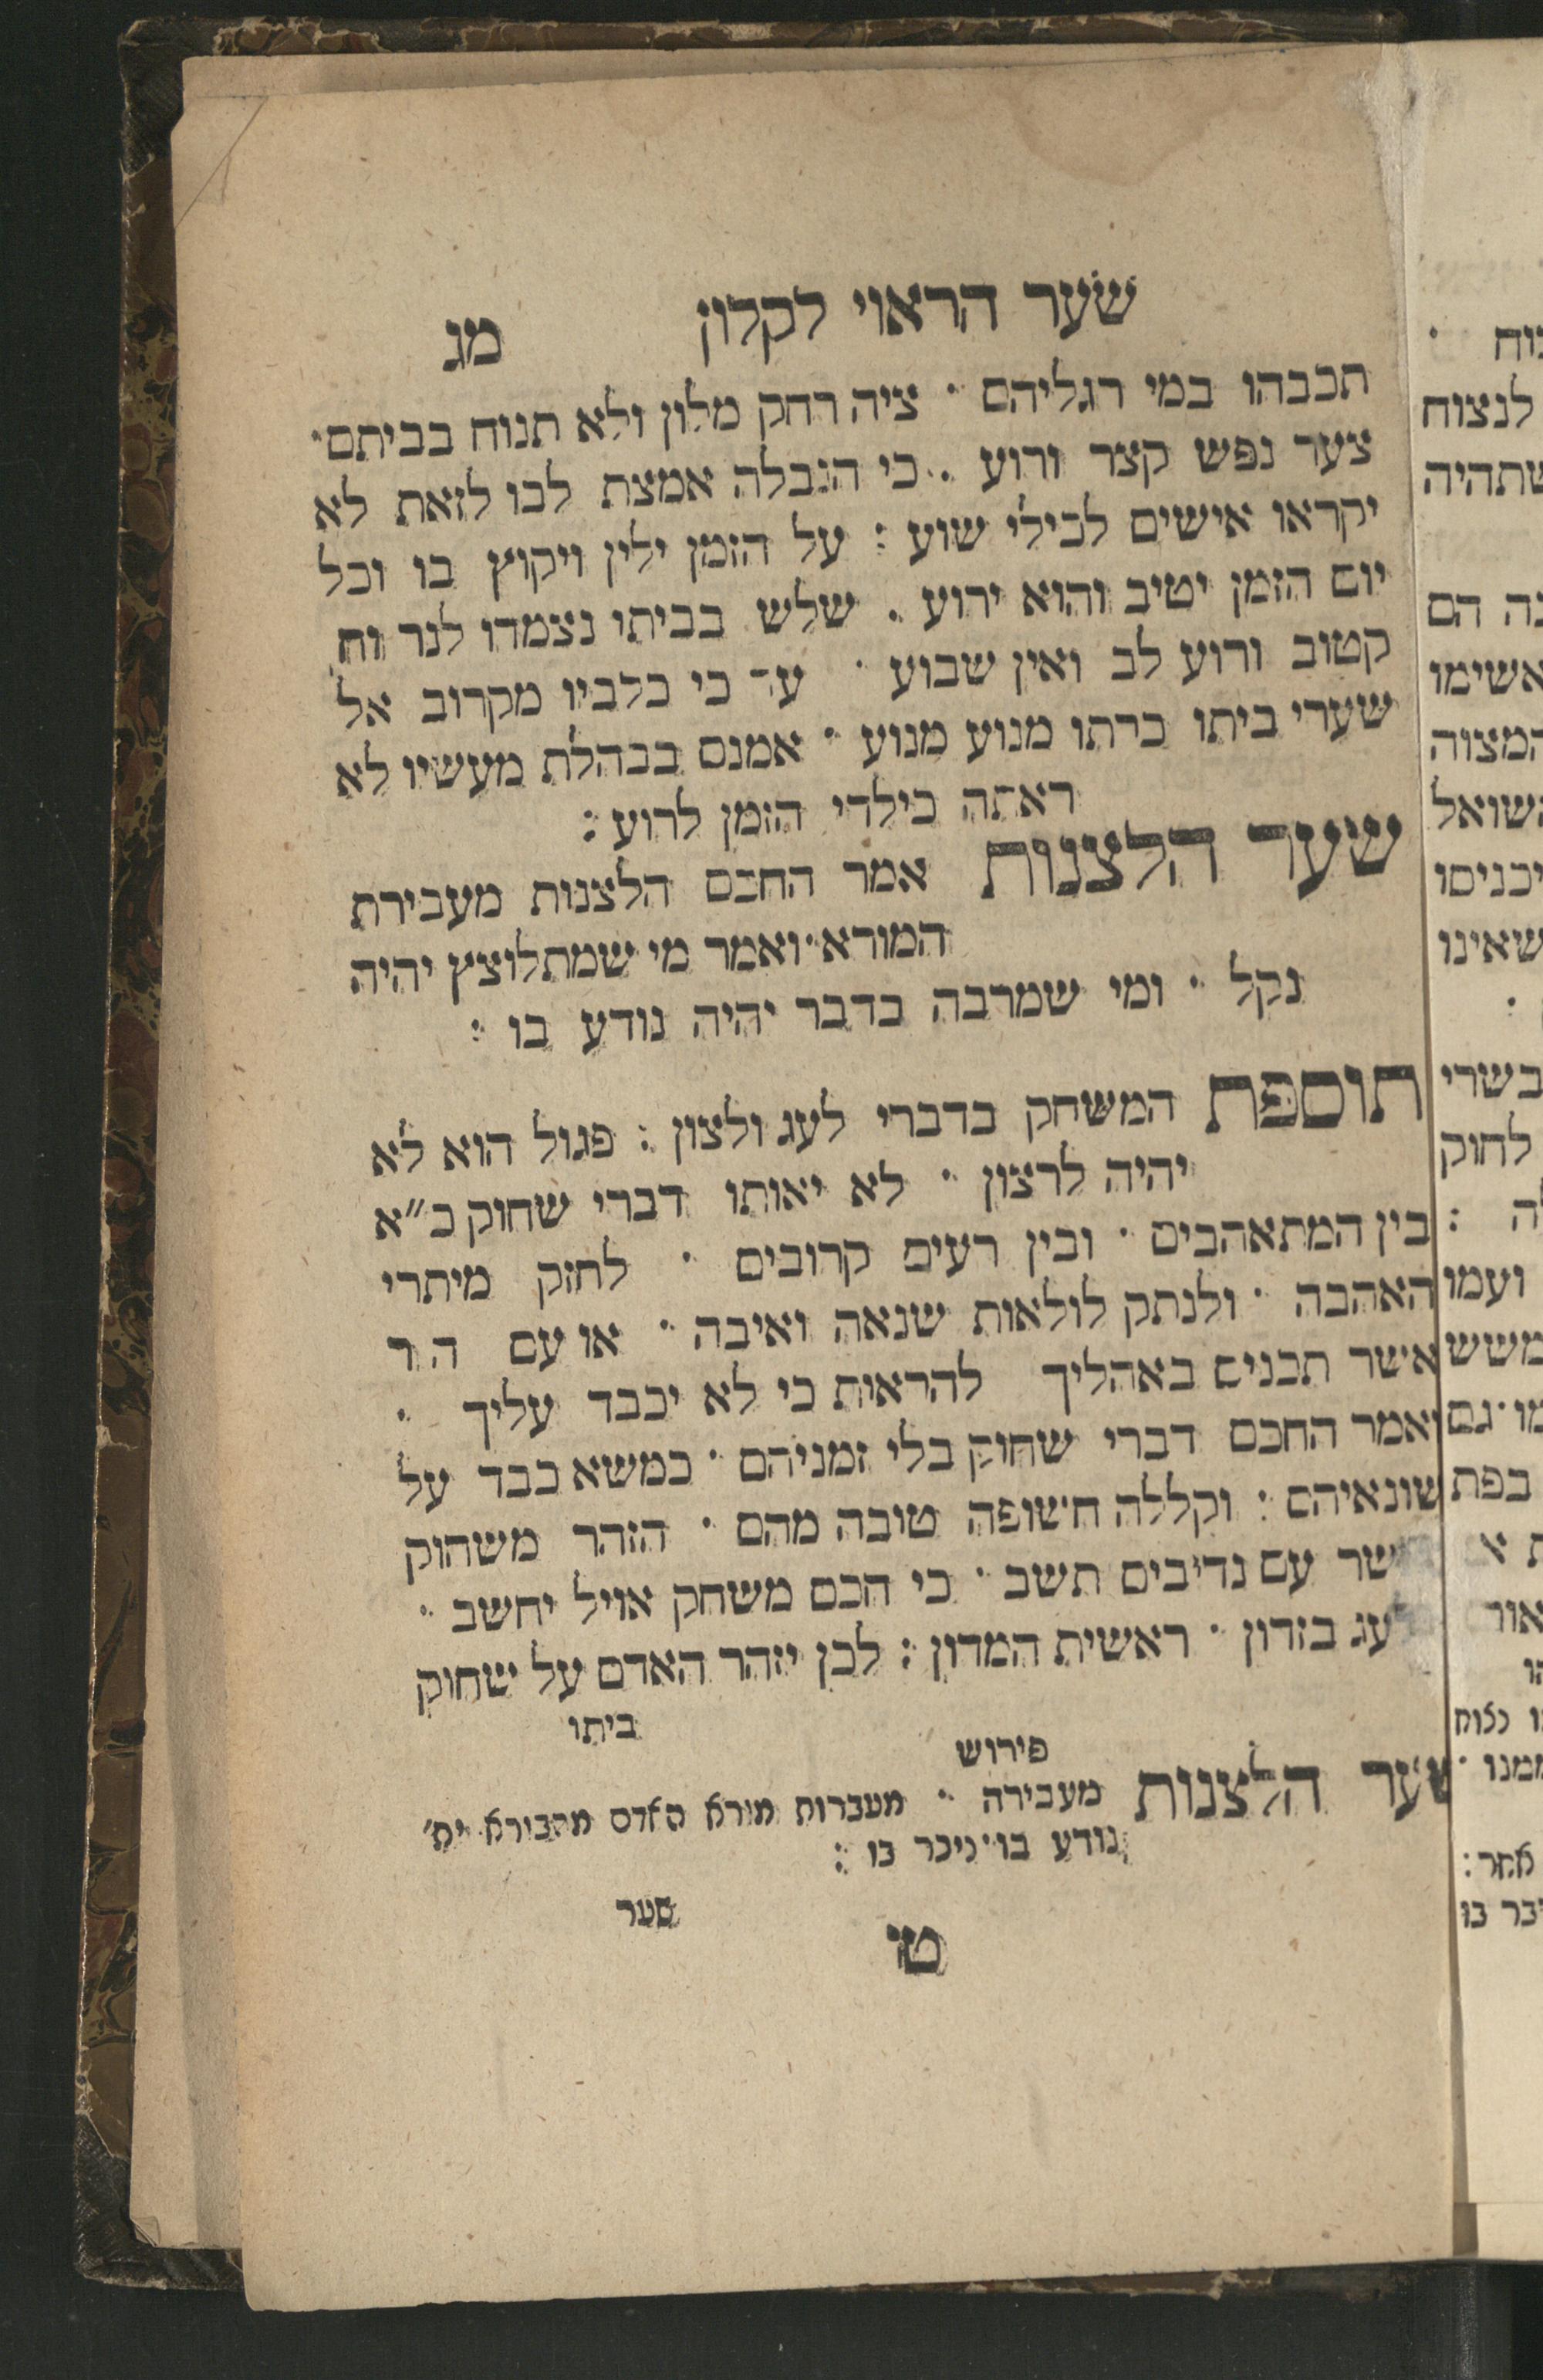 שער הראוי לקלון מג
תכבהו במי רגליהם · ציה רחק מלון ולא תנוח בביתם·
צער נפש קצר ורוע . כי הנבלה אמצת לבו לזאת לא
יקראו אישים לכילי שוע : על הזמן ילין ויקוץ בו וכל
יום הזמן יטיב והוא ירוע . שלש בביתו נצמדו לנר וח
קטוב ורוע לב ואין שבוע · כי כלביו מקרוב אל
שערי ביתו כרתו מנוע מנוע · אמנם בבהלת מעשיו לא
ראתה כילדי הזמן לרוע :
שער הלצנות אמר החכם הלצנות מעבירת
המורא · ואמר מי שמתלוצץ יהיה
נקל · ומי שמרבה בדבר יהיה נודע בו :
תוספת המשחק בדברי לעג ולצון : פגול הוא לא
יהיה לרצון · לא יאותו דברי שחוק כ״א
בין המתאהבים · ובין רעים קרובים · לחזק מיתרי
האהבה · ולנתק לולאות שנאה ואיבה · או עם
אשר תכניס באהליך להראות כי לא יכבד עליך ·
ואמר החכם דברי שחוק בלי זמניהם · כמשא כבד על
שונאיהם : וקללה חשופה טובה מהם · הזהר משחוק
שר עם נדיבים תשב · כי הכם משחק אויל יחשב ·
לעג בזדון · ראשית המדון : לכן יזהר האדם על שחוק
ביתו
פירוש
שער הלצנות מעבירה · מעברות מורא האדם מהבורא ית׳
נודע בו · ניכר בו :
ט שער
נוח ·
לנצוח
שתהיה
הם
אשימו
המצוה
השואל
יכניסו
שאינו
בשרי
לחוק
ועמו
ממשש
גם
בפת
אחר :
בו